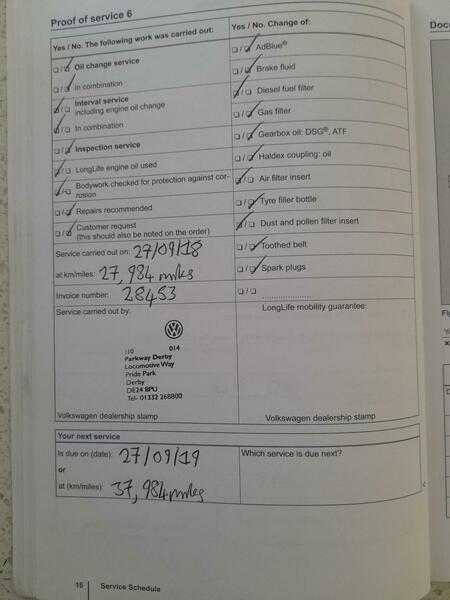 Proof of service 6
Yes / No. The following work was carried out:
Oil change service
In combination
Interval service
including engine oil change
In combination
Inspection service
LongLife engine oil used
Bodywork checked for protection against cor-
rosion
Repairs recommended
Customer request
(this should also be noted on the order)
Service carried out on: 27/09/18
at km/miles: 27,984 miles
Invoice number: 28453
Service carried out by:
110 014
Parkway Derby
Locomotive Way
Pride Park
Derby
DE24 8PU
Tel- 01332 268800
Volkswagen dealership stamp
Yes / No. Change of:
AdBlue®
Brake fluid
Diesel fuel filter
Gas filter
Gearbox oil: DSG®, ATF
Haldex coupling: oil
Air filter insert
Tyre filler bottle
Dust and pollen filter insert
Toothed belt
Spark plugs
LongLife mobility guarantee:
Volkswagen dealership stamp
Your next service
Is due on (date): 27/09/19
or
at (km/miles): 37,984 miles
Which service is due next?
16 Service Schedule